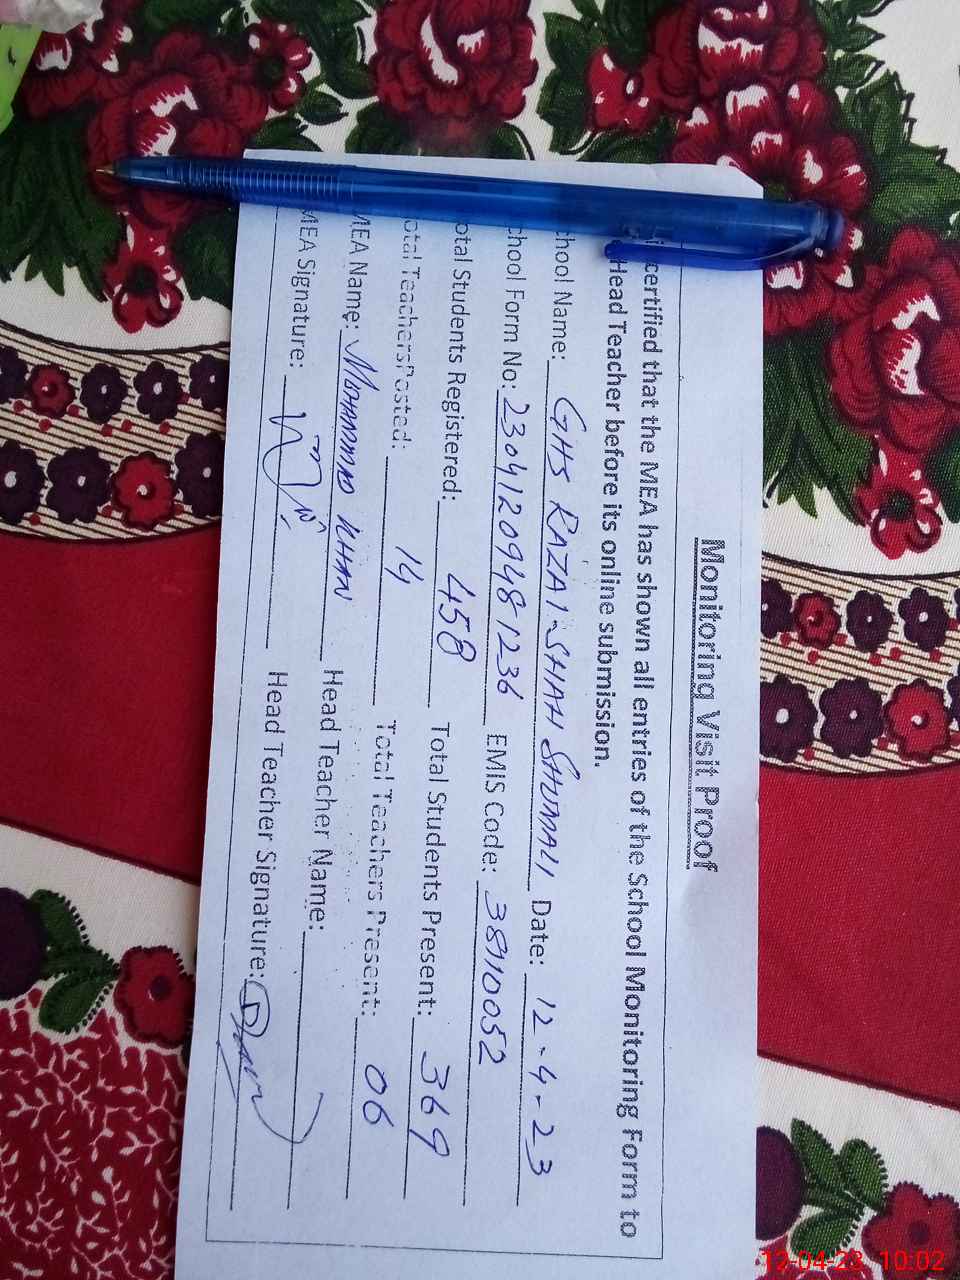 Monitoring Visit Proof
certified that the MEA has shown all entries of the School Monitoring Form to
Head Teacher before its online submission.
chool Name: GHS RAZAI-SHAH SHUMALI Date: 12-4-23
chool Form No: 23041209481236 EMIS Code: 38110052
otal Students Registered: 458 Total Students Present: 369
otal TeachersPosted: 14 Total Teachers Present: 06
MEA Name: MUHAMMAD KHAN Head Teacher Name:
MEA Signature: Head Teacher Signature:
12-04-23 10:02